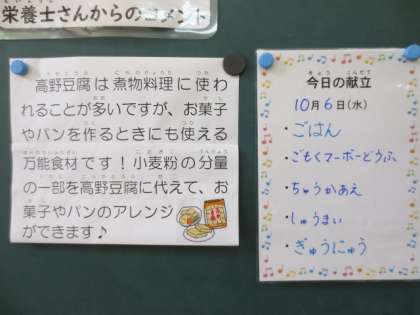 栄養士さんからのコメント
高野豆腐は煮物料理に使わ
れることが多いですが、お菓子
やパンを作るときにも使える
万能食材です！小麦粉の分量
の一部を高野豆腐に代えて、お
菓子やパンのアレンジ
ができます♪
今日の献立
10月6日(水)
・ごはん
・ごもくマーボーどうふ
・ちゅうかあえ
・しゅうまい
・ぎゅうにゅう